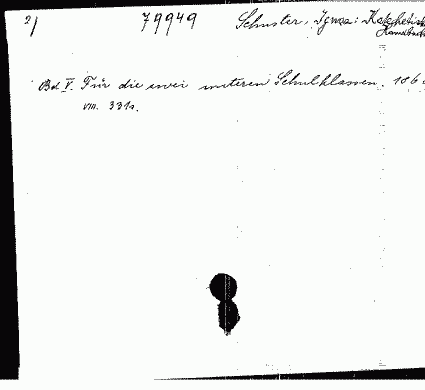 2) 79949 Schuster, Ignaz: Katechetisch
Handbuch
Bd V. Für die zwei unteren Schulklassen. 186
VIII. 331s.